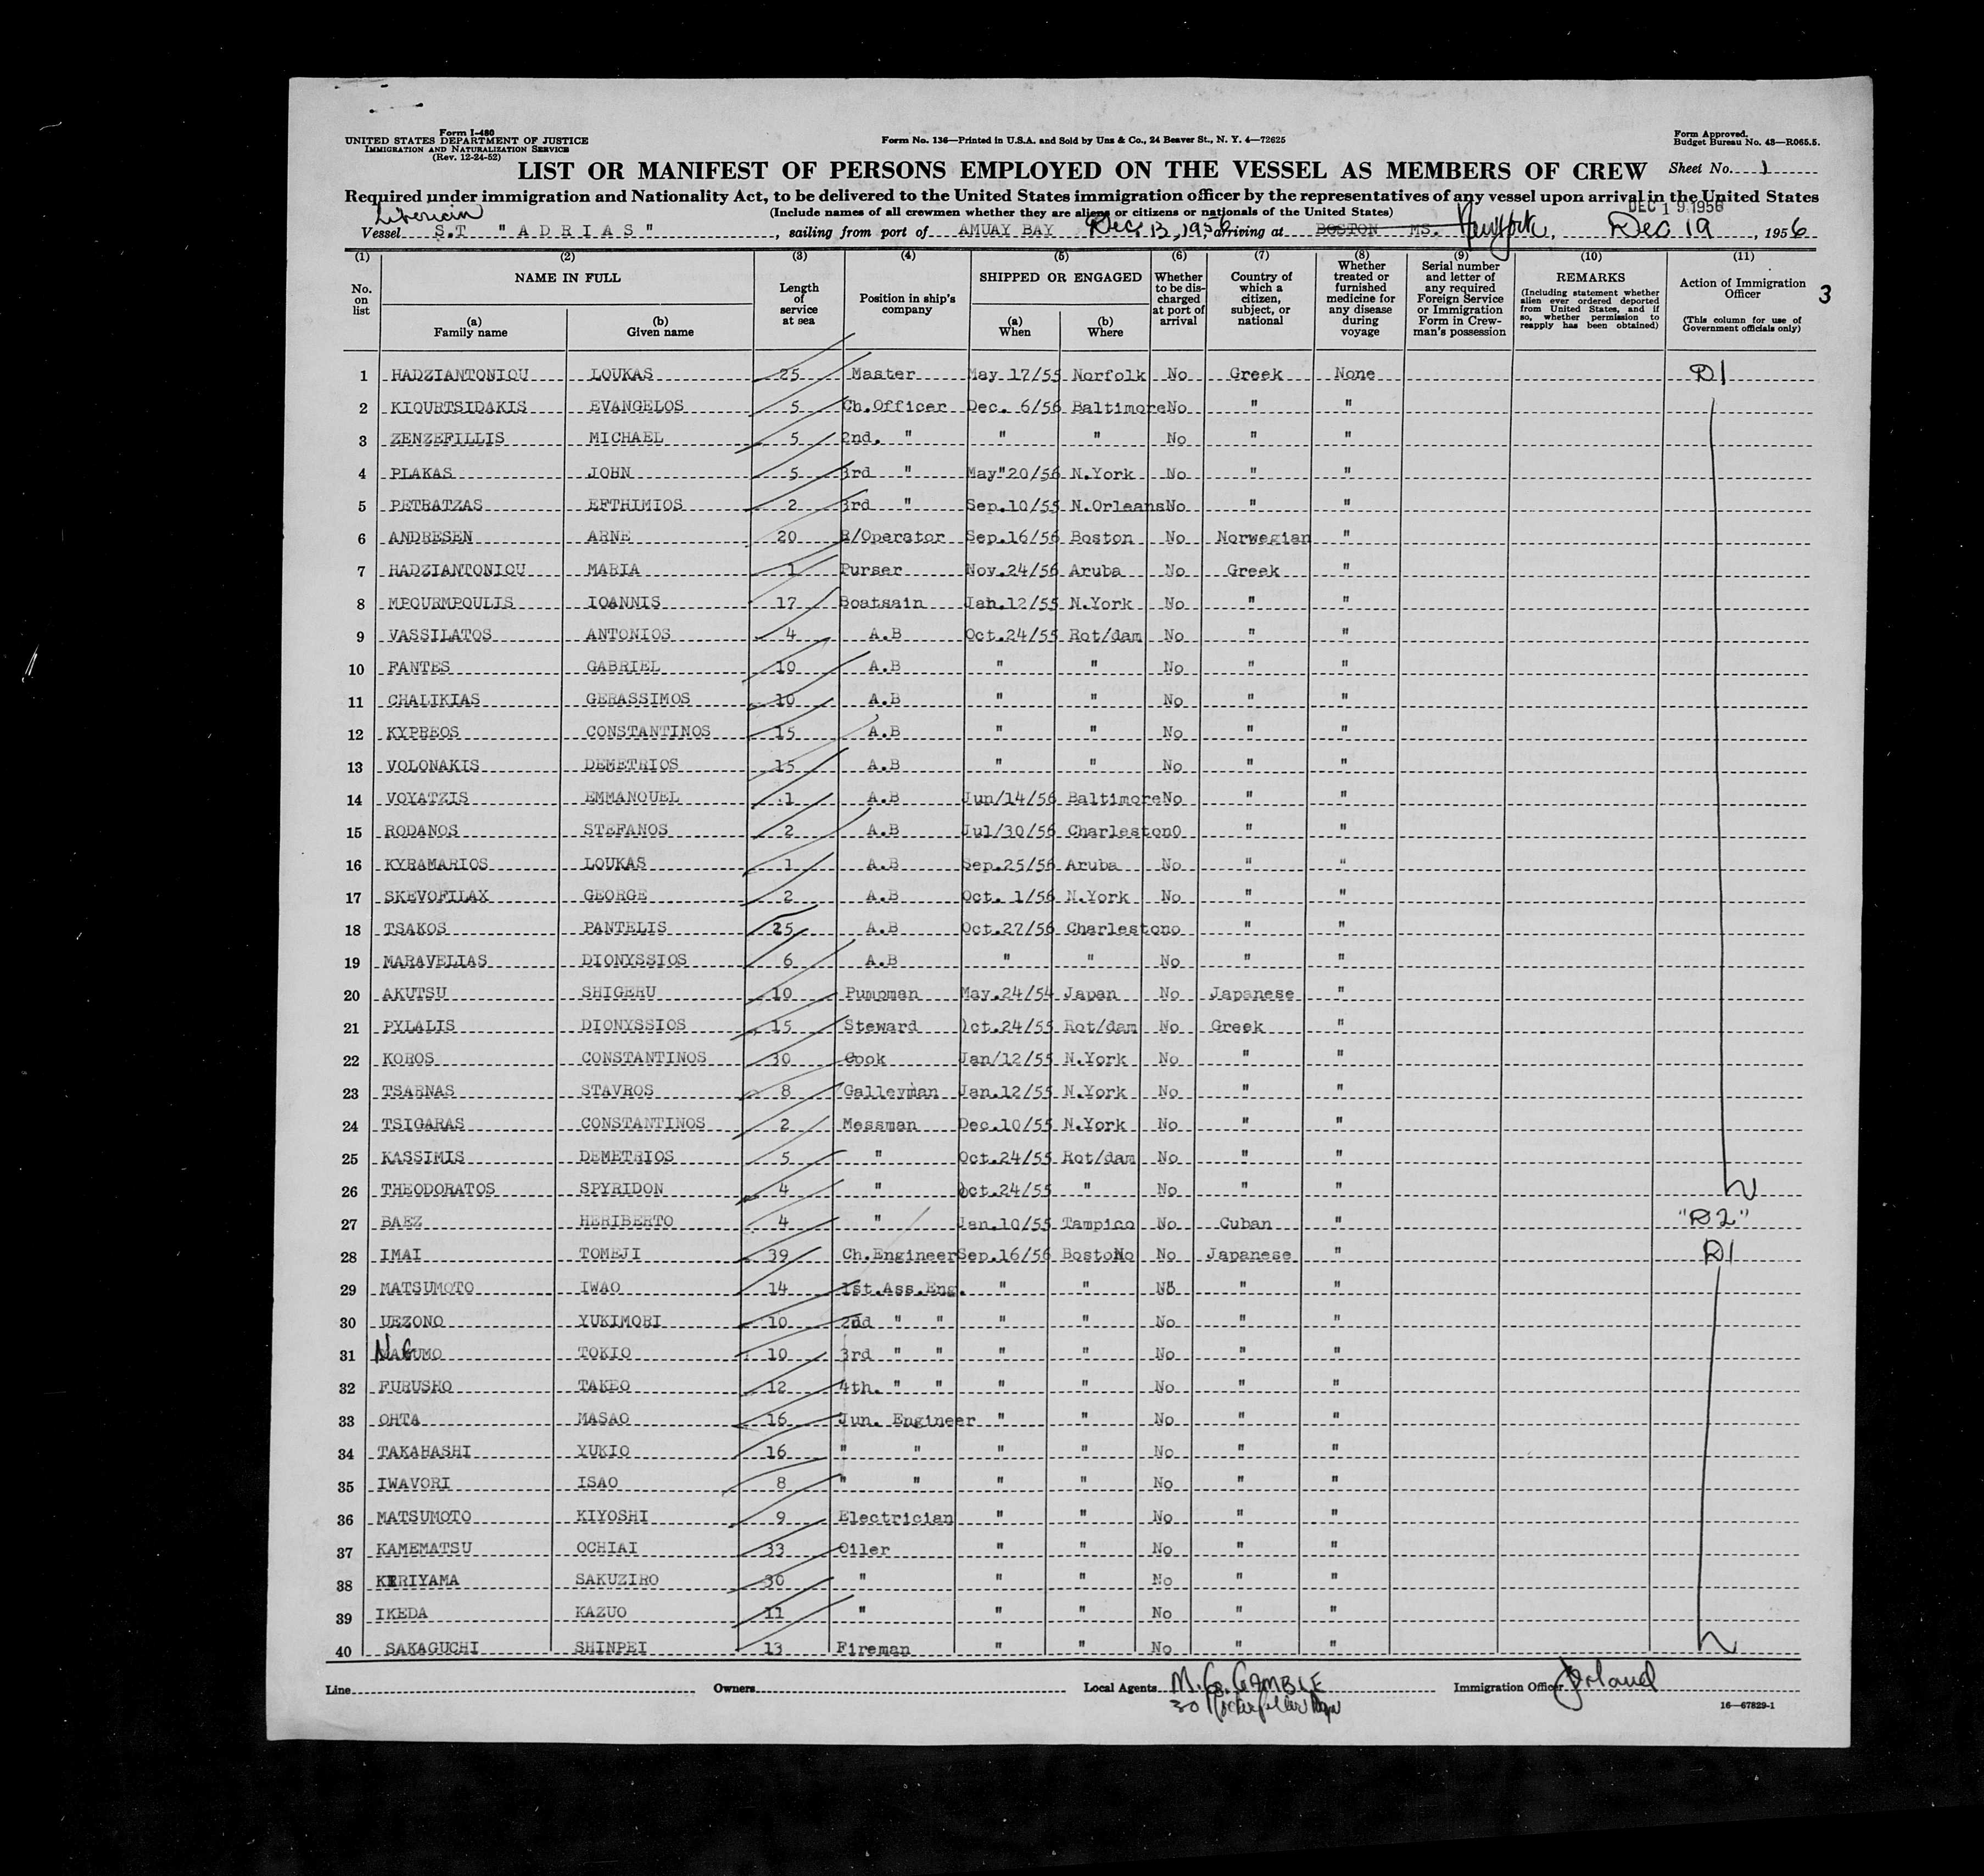 Form I-480
UNITED STATES DEPARTMENT OF JUSTICE
IMMIGRATION AND NATURALIZATION SERVICE
(Rev. 12-24-52)
Form No. 136—Printed in U.S.A. and Sold by Unz & Co., 24 Beaver St., N. Y. 4—72625
Form Approved.
Budget Bureau No. 43—R065.5.
LIST OR MANIFEST OF PERSONS EMPLOYED ON THE VESSEL AS MEMBERS OF CREW
Sheet No. 1
Required under immigration and Nationality Act, to be delivered to the United States immigration officer by the representatives of any vessel upon arrival in the United States
(Include names of all crewmen whether they are aliens or citizens or nationals of the United States)
DEC 19 1956
Liberian
Vessel S.T "ADRIAS", sailing from port of AMUAY BAY Dec 13, 1956, arriving at BOSTON MS. New York, Dec 19, 1956
(1) No. on list
(2) NAME IN FULL (a) Family name (b) Given name
(3) Length of service at sea
(4) Position in ship's company
(5) SHIPPED OR ENGAGED (a) When (b) Where
(6) Whether to be discharged at port of arrival
(7) Country of which a citizen, subject, or national
(8) Whether treated or furnished medicine for any disease during voyage
(9) Serial number and letter of any required Foreign Service or Immigration Form in Crewman's possession
(10) REMARKS (Including statement whether alien ever ordered deported from United States, and if so, whether permission to reapply has been obtained)
(11) Action of Immigration Officer (This column for use of Government officials only)
3
1 HADZIANTONIOU LOUKAS 25 Master May 17/55 Norfolk No Greek None D1
2 KIOURTSIDAKIS EVANGELOS 5 Ch.Officer Dec. 6/56 Baltimore No " "
3 ZENZEFILLIS MICHAEL 5 2nd. " " " No " "
4 PLAKAS JOHN 5 3rd " May"20/56 N.York No " "
5 PETRATZAS EFTHIMIOS 2 3rd " Sep.10/55 N.Orleans No " "
6 ANDRESEN ARNE 20 R/Operator Sep.16/56 Boston No Norwegian "
7 HADZIANTONIOU MARIA 1 Purser Nov.24/56 Aruba No Greek "
8 MPOURMPOULIS IOANNIS 17 Boatsain Jan.12/55 N.York No " "
9 VASSILATOS ANTONIOS 4 A.B Oct.24/55 Rot/dam No " "
10 FANTES GABRIEL 10 A.B " " No " "
11 CHALIKIAS GERASSIMOS 10 A.B " " No " "
12 KYPREOS CONSTANTINOS 15 A.B " " No " "
13 VOLONAKIS DEMETRIOS 15 A.B " " No " "
14 VOYATZIS EMMANOUEL 1 A.B Jun/14/56 Baltimore No " "
15 RODANOS STEFANOS 2 A.B Jul/30/56 Charlestono " "
16 KYRAMARIOS LOUKAS 1 A.B Sep.25/56 Aruba No " "
17 SKEVOFILAX GEORGE 2 A.B Oct. 1/56 N.York No " "
18 TSAKOS PANTELIS 25 A.B Oct.27/56 Charlestono " "
19 MARAVELIAS DIONYSSIOS 6 A.B " " No " "
20 AKUTSU SHIGERU 10 Pumpman May.24/54 Japan No Japanese "
21 PYLALIS DIONYSSIOS 15 Steward Oct.24/55 Rot/dam No Greek "
22 KOROS CONSTANTINOS 30 Cook Jan/12/55 N.York No " "
23 TSARNAS STAVROS 8 Galleyman Jan.12/55 N.York No " "
24 TSIGARAS CONSTANTINOS 2 Messman Dec.10/55 N.York No " "
25 KASSIMIS DEMETRIOS 5 " Oct.24/55 Rot/dam No " "
26 THEODORATOS SPYRIDON 4 " Oct.24/55 " No " "
27 BAEZ HERIBERTO 4 " Jan.10/55 Tampico No Cuban " "D2"
28 IMAI TOMEJI 39 Ch.Engineer Sep.16/56 BostoNo No Japanese " D1
29 MATSUMOTO IWAO 14 1st.Ass.Eng. " " No " "
30 UEZONO YUKIMORI 10 2nd " " " " No " "
31 NAGUMO TOKIO 10 3rd " " " " No " "
32 FURUSHO TAKEO 12 4th. " " " " No " "
33 OHTA MASAO 16 Jun. Engineer " " No " "
34 TAKAHASHI YUKIO 16 " " " " No " "
35 IWAVORI ISAO 8 " " " " No " "
36 MATSUMOTO KIYOSHI 9 Electrician " " No " "
37 KAMEMATSU OCHIAI 33 Oiler " " No " "
38 KIRIYAMA SAKUZIRO 30 " " " No " "
39 IKEDA KAZUO 11 " " " No " "
40 SAKAGUCHI SHINPEI 13 Fireman " " No " "
Line Owners Local Agents M. G. GAMBLE Immigration Officer
30 Rockefeller
16—67829-1